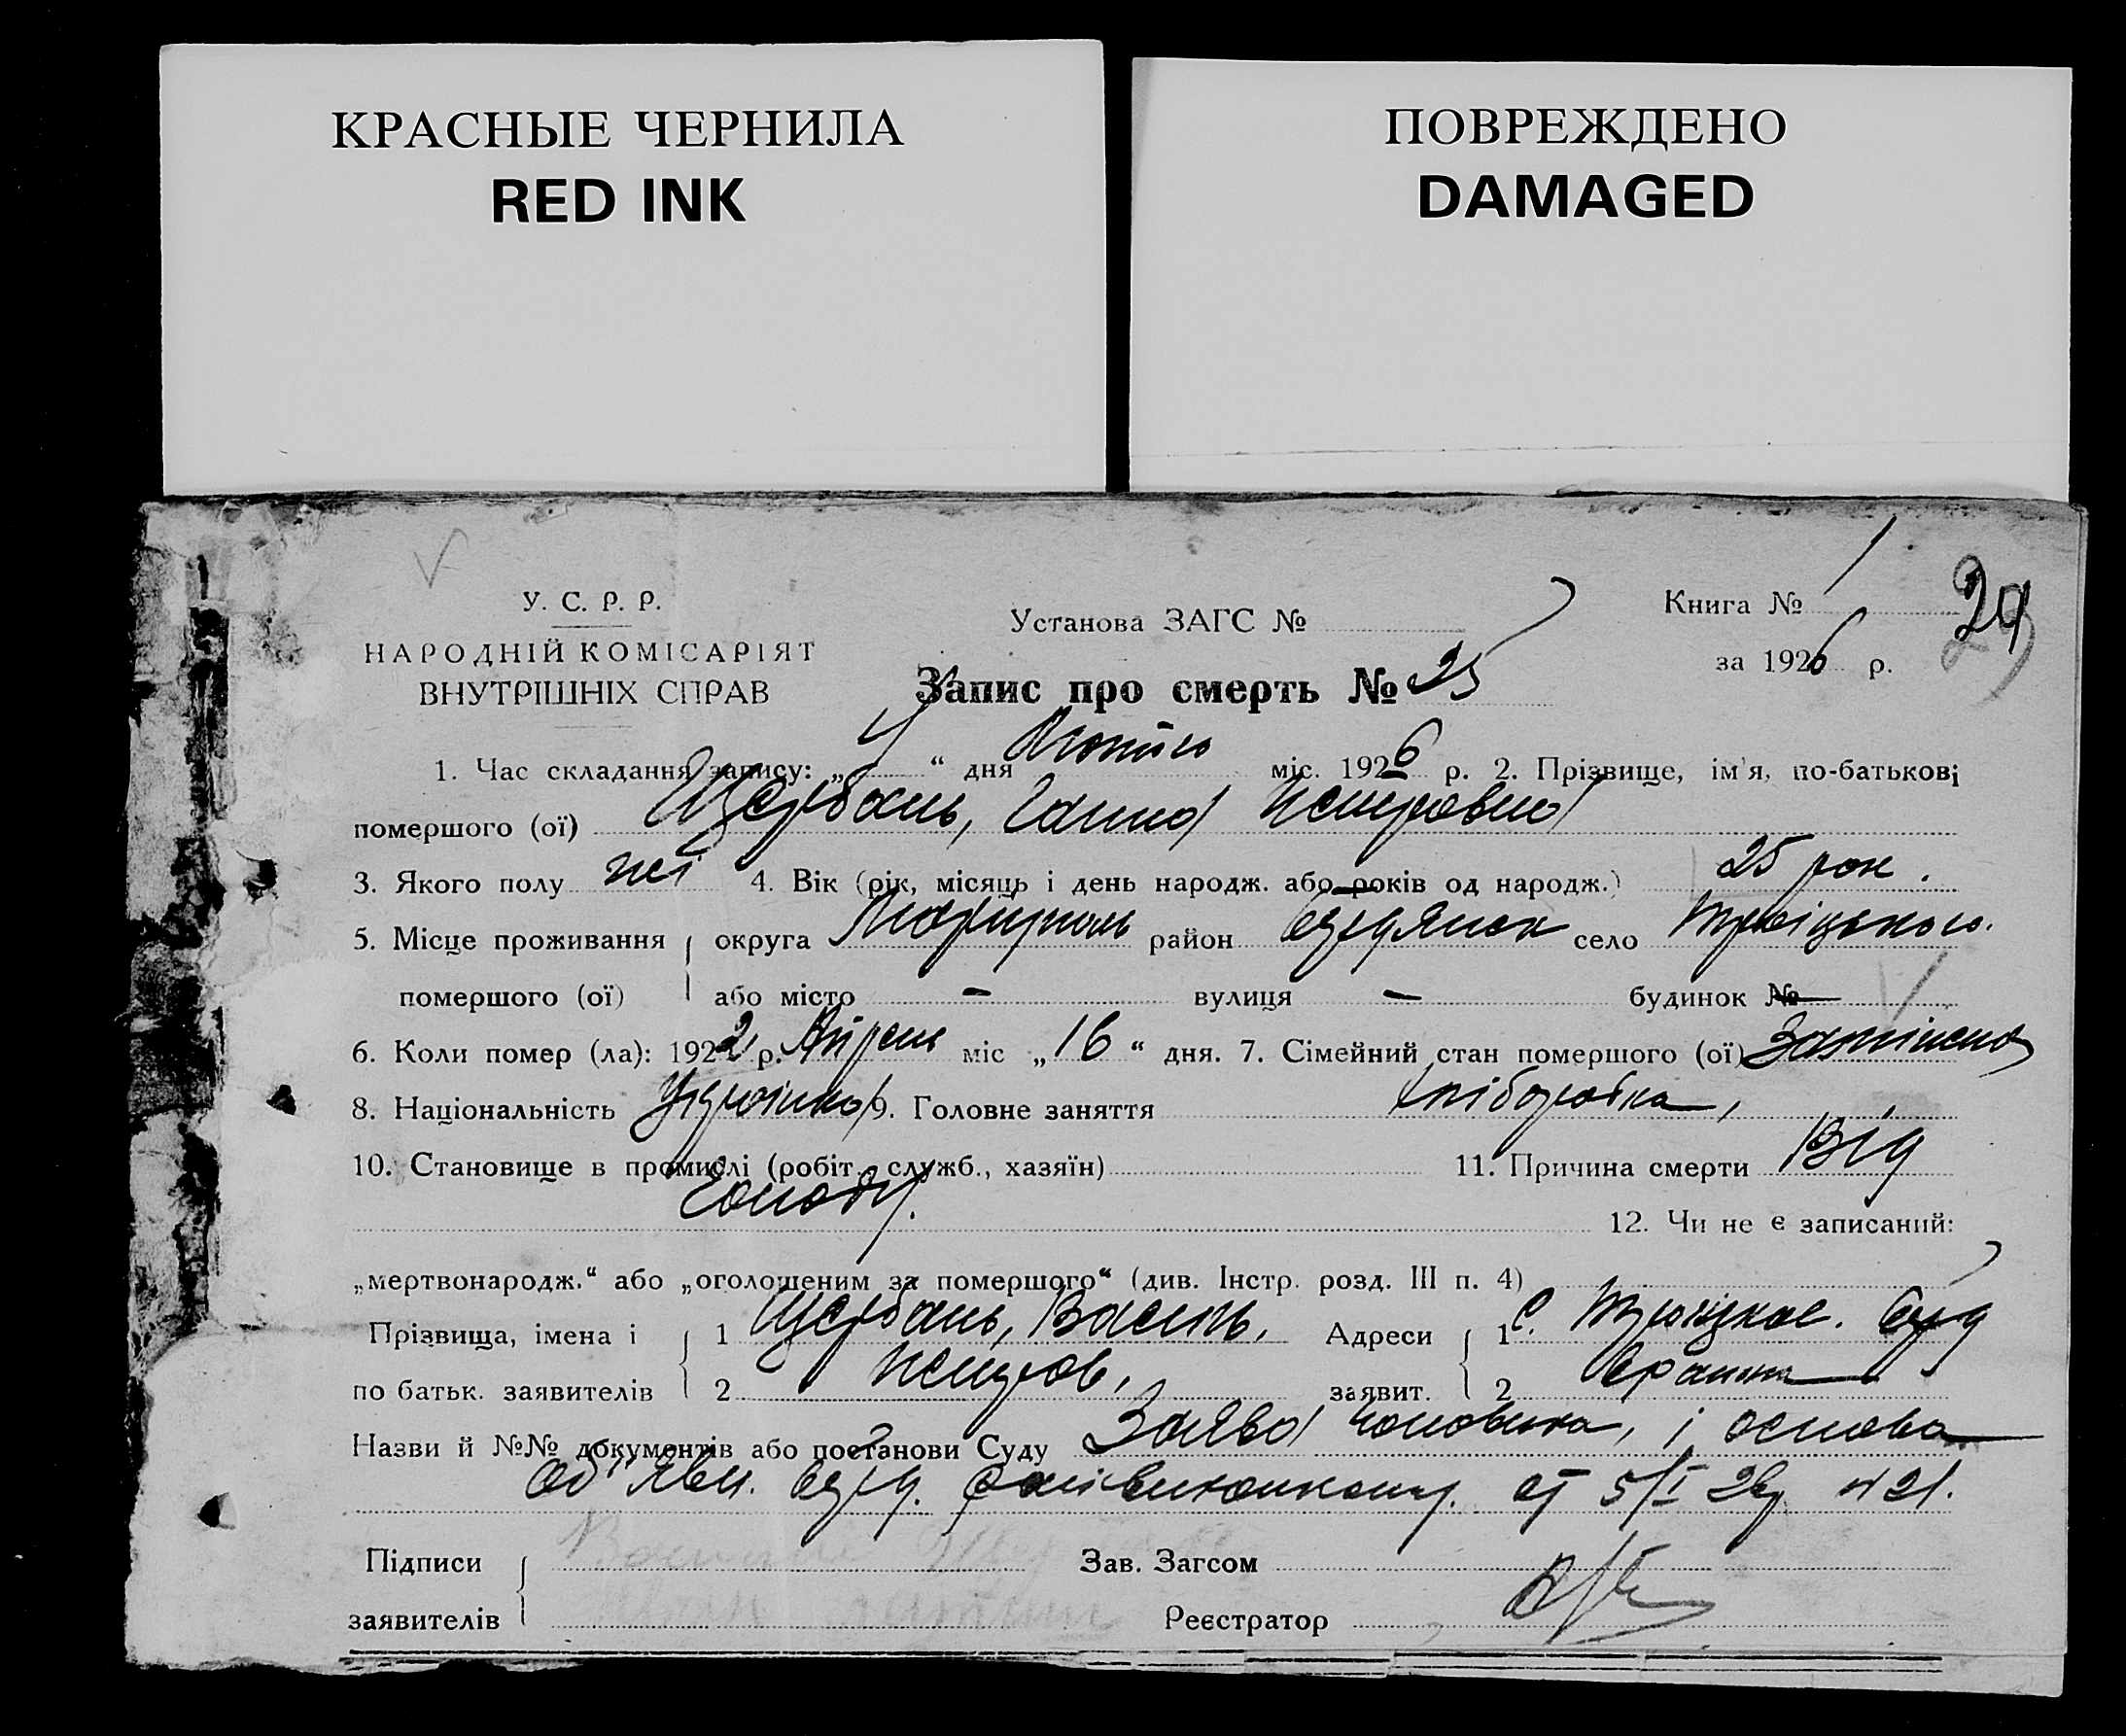 КРАСНЫЕ ЧЕРНИЛА
RED INK
ПОВРЕЖДЕНО
DAMAGED
У. С. Р. Р.
НАРОДНІЙ КОМІСАРІЯТ
ВНУТРІШНІХ СПРАВ
Установа ЗАГС №
Запис про смерть № 25
Книга № 1
29
за 1926 р.
1. Час складання запису: „ “ дня Лютого міс. 1926 р. 2. Прізвище, ім'я, по-батькові
помершого (ої) Щербань, Ганна Петровна
3. Якого полу жі 4. Вік (рік, місяць і день народж. або років од народж.) 25 рок.
5. Місце проживання округа Маріуполь район Бердянск село Троіцького.
помершого (ої) або місто - вулиця - будинок №
6. Коли помер (ла): 1922 р. Апрель міс „16“ дня. 7. Сімейний стан помершого (ої) Заміжна
8. Національність Украінка 9. Головне заняття хліборобка,
10. Становище в промислі (робіт., служб., хазяїн) 11. Причина смерти Від
Голоду. 12. Чи не є записаний:
„мертвонародж.“ або „оголошеним за помершого“ (див. Інстр. розд. III п. 4)
Прізвища, імена і 1 Щербань, Василь, Адреси 1 с. Троіцкое. Берд
по батьк. заявителів 2 Петров, заявит. 2 району
Назви й №№ документів або постанови Суду Заява чоловіка, і основа
об'явл. Берд. райвиконкому. от 5/I 26 № 21.
Підписи Зав. Загсом
заявителів Реєстратор